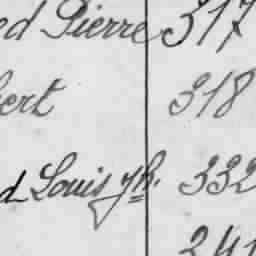 ed Pierre 317
bert 318
d Louis Jh. 332
241